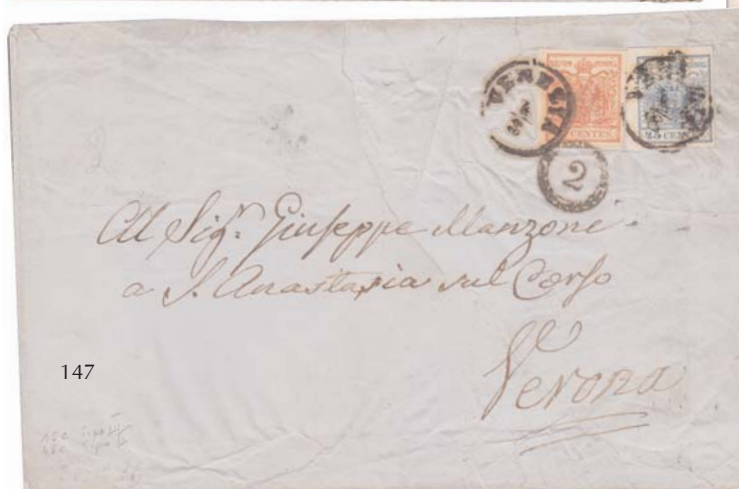 VENEZIA
CENTES
45 CENTES
2
All Sigr. Giuseppe Manzoni
a S. Anastasia sul Corso
Verona
147